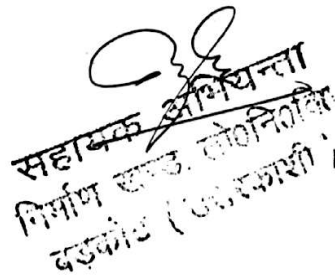 सहायक अभियन्ता
निर्माण खण्ड, लो०नि०वि०
बड़कोट (उत्तरकाशी)